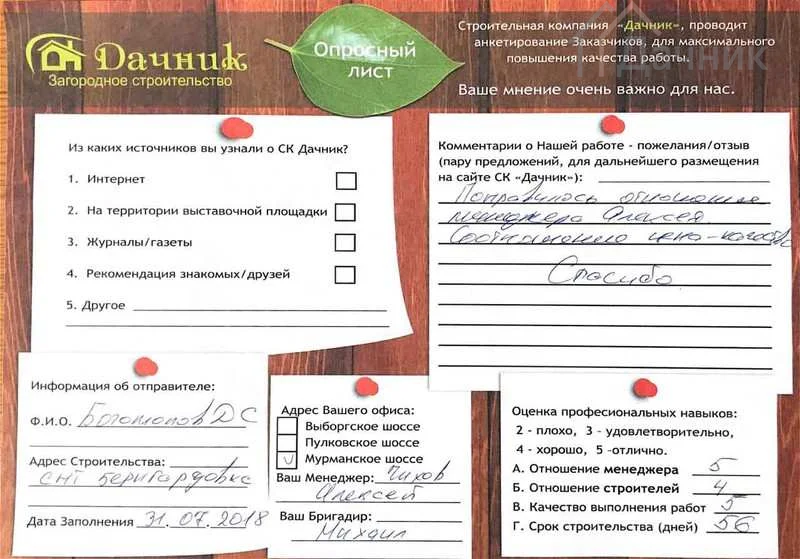 Дачник
Загородное строительство
Опросный
лист
Строительная компания «Дачник», проводит
анкетирование Заказчиков, для максимального
повышения качества работы.
Ваше мнение очень важно для нас.
Дачник
Из каких источников вы узнали о СК Дачник?
1. Интернет
2. На территории выставочной площадки
3. Журналы/газеты
4. Рекомендация знакомых/друзей
5. Другое
Комментарии о Нашей работе - пожелания/отзыв
(пару предложений, для дальнейшего размещения
на сайте СК «Дачник»):
Понравилось отношение
менеджера Алексея.
Соотношение цена-качество
Спасибо
Информация об отправителе:
Ф.И.О. ДС
Адрес Строительства:
СНТ
Дата Заполнения 31.07.2018
Адрес Вашего офиса:
Выборгское шоссе
Пулковское шоссе
Мурманское шоссе
Ваш Менеджер: Чихов
Алексей
Ваш Бригадир:
Михаил
Оценка професиональных навыков:
2 - плохо, 3 - удовлетворительно,
4 - хорошо, 5 -отлично.
А. Отношение менеджера 5
Б. Отношение строителей 4
В. Качество выполнения работ 5
Г. Срок строительства (дней) 56